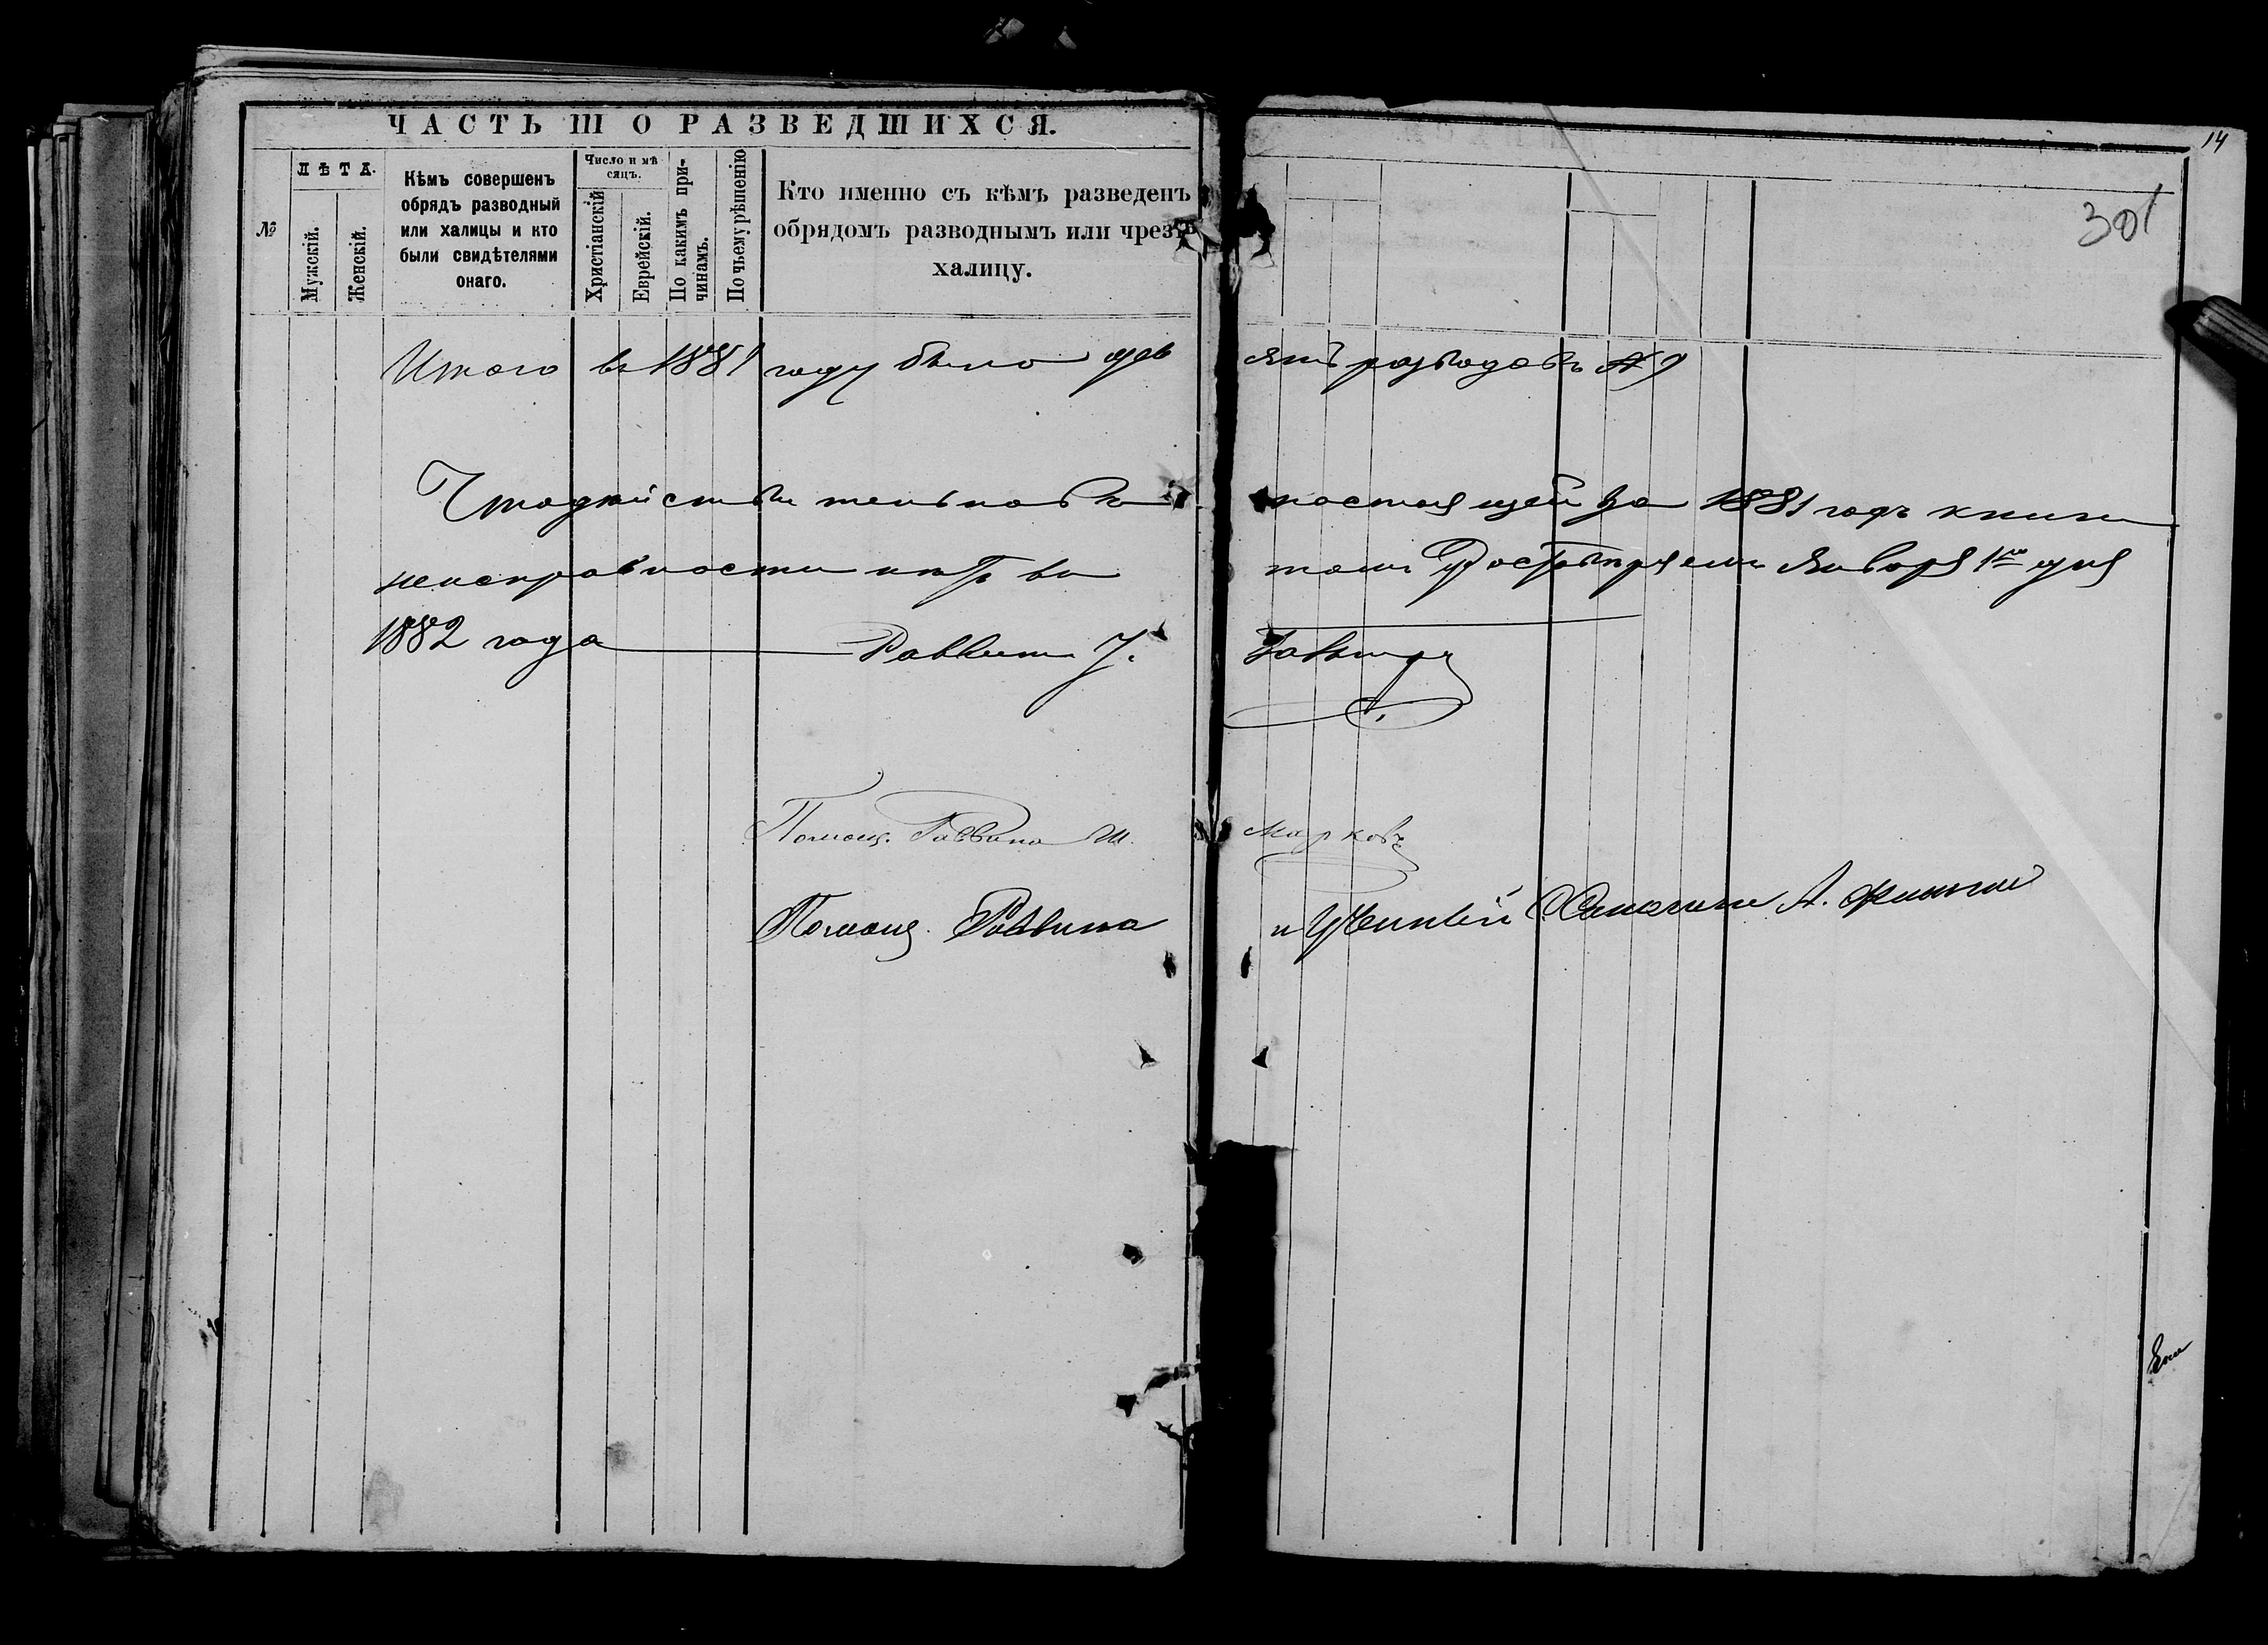 ЧАСТЬ III О РАЗВЕДШИХСЯ.
14
301
№
ЛѢТА.
Мужскій.
Женскій.
Кѣмъ совершенъ
обрядъ разводный
или халицы и кто
были свидѣтелями
онаго.
Число и мѣ
сяцъ.
Христіанскій
Еврейскій.
По какимъ при-
чинамъ.
По чьему рѣшенію
Кто именно съ кѣмъ разведенъ
обрядомъ разводнымъ или чрезъ
халицу.
Итого въ 1881 году было девять разводовъ № 9
Что действительно въ настоящей за 1881 годъ книги
неисправности нѣтъ въ томъ удостовѣряемъ Января 1го дня
1882 года Раввинъ
Помощ. Раввина М. Марковъ
Помощ. Раввина и Учиный Синагоги А.